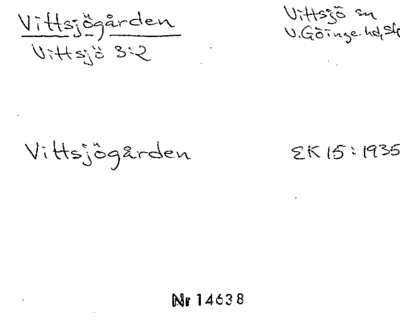 Vittsjögården
Vittsjö 3:2
Vittsjö sn
V. Göinge hd, Sk
Vittsjögården
EK 15:1935
Nr 14638